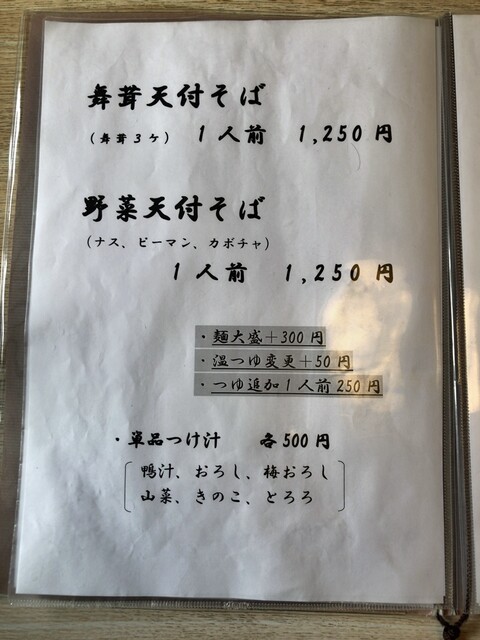 舞茸天付そば
(舞茸3ケ) 1人前 1,250円
野菜天付そば
(ナス、ピーマン、カボチャ)
1人前 1,250円
・麺大盛＋300円
・温つゆ変更＋50円
・つゆ追加1人前250円
・単品つけ汁 各500円
鴨汁、おろし、梅おろし
山菜、きのこ、とろろ